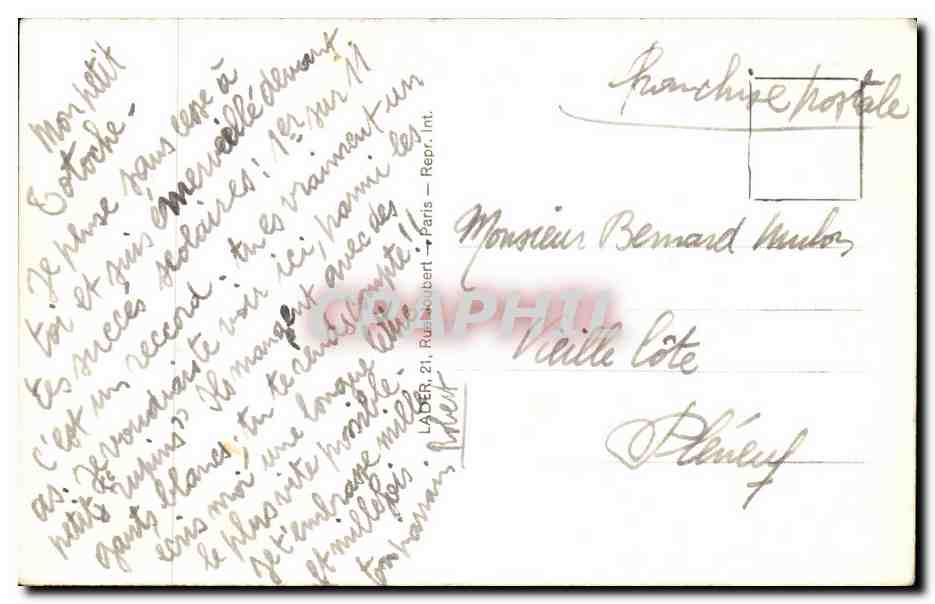 Mon petit
Totoche -
Je pense sans cesse à
toi et suis émerveillé devant
tes succès scolaires ! 1er sur 11
c'est un reccord. tu es vraiment un
as. Je voudrais te voir ici, parmi les
petits "rupins" Ils mangent avec des
gants blancs, tu te rends compte !!
écris moi une longue lettre
le plus vite possible.
Je t'embrasse mille
et mille fois
ton parrain Robert
LADER, 21, Rue Joubert — Paris — Repr. Int.
Franchise postale
Monsieur Bernard
Vieille Côte
Pléneuf
CRAPHU